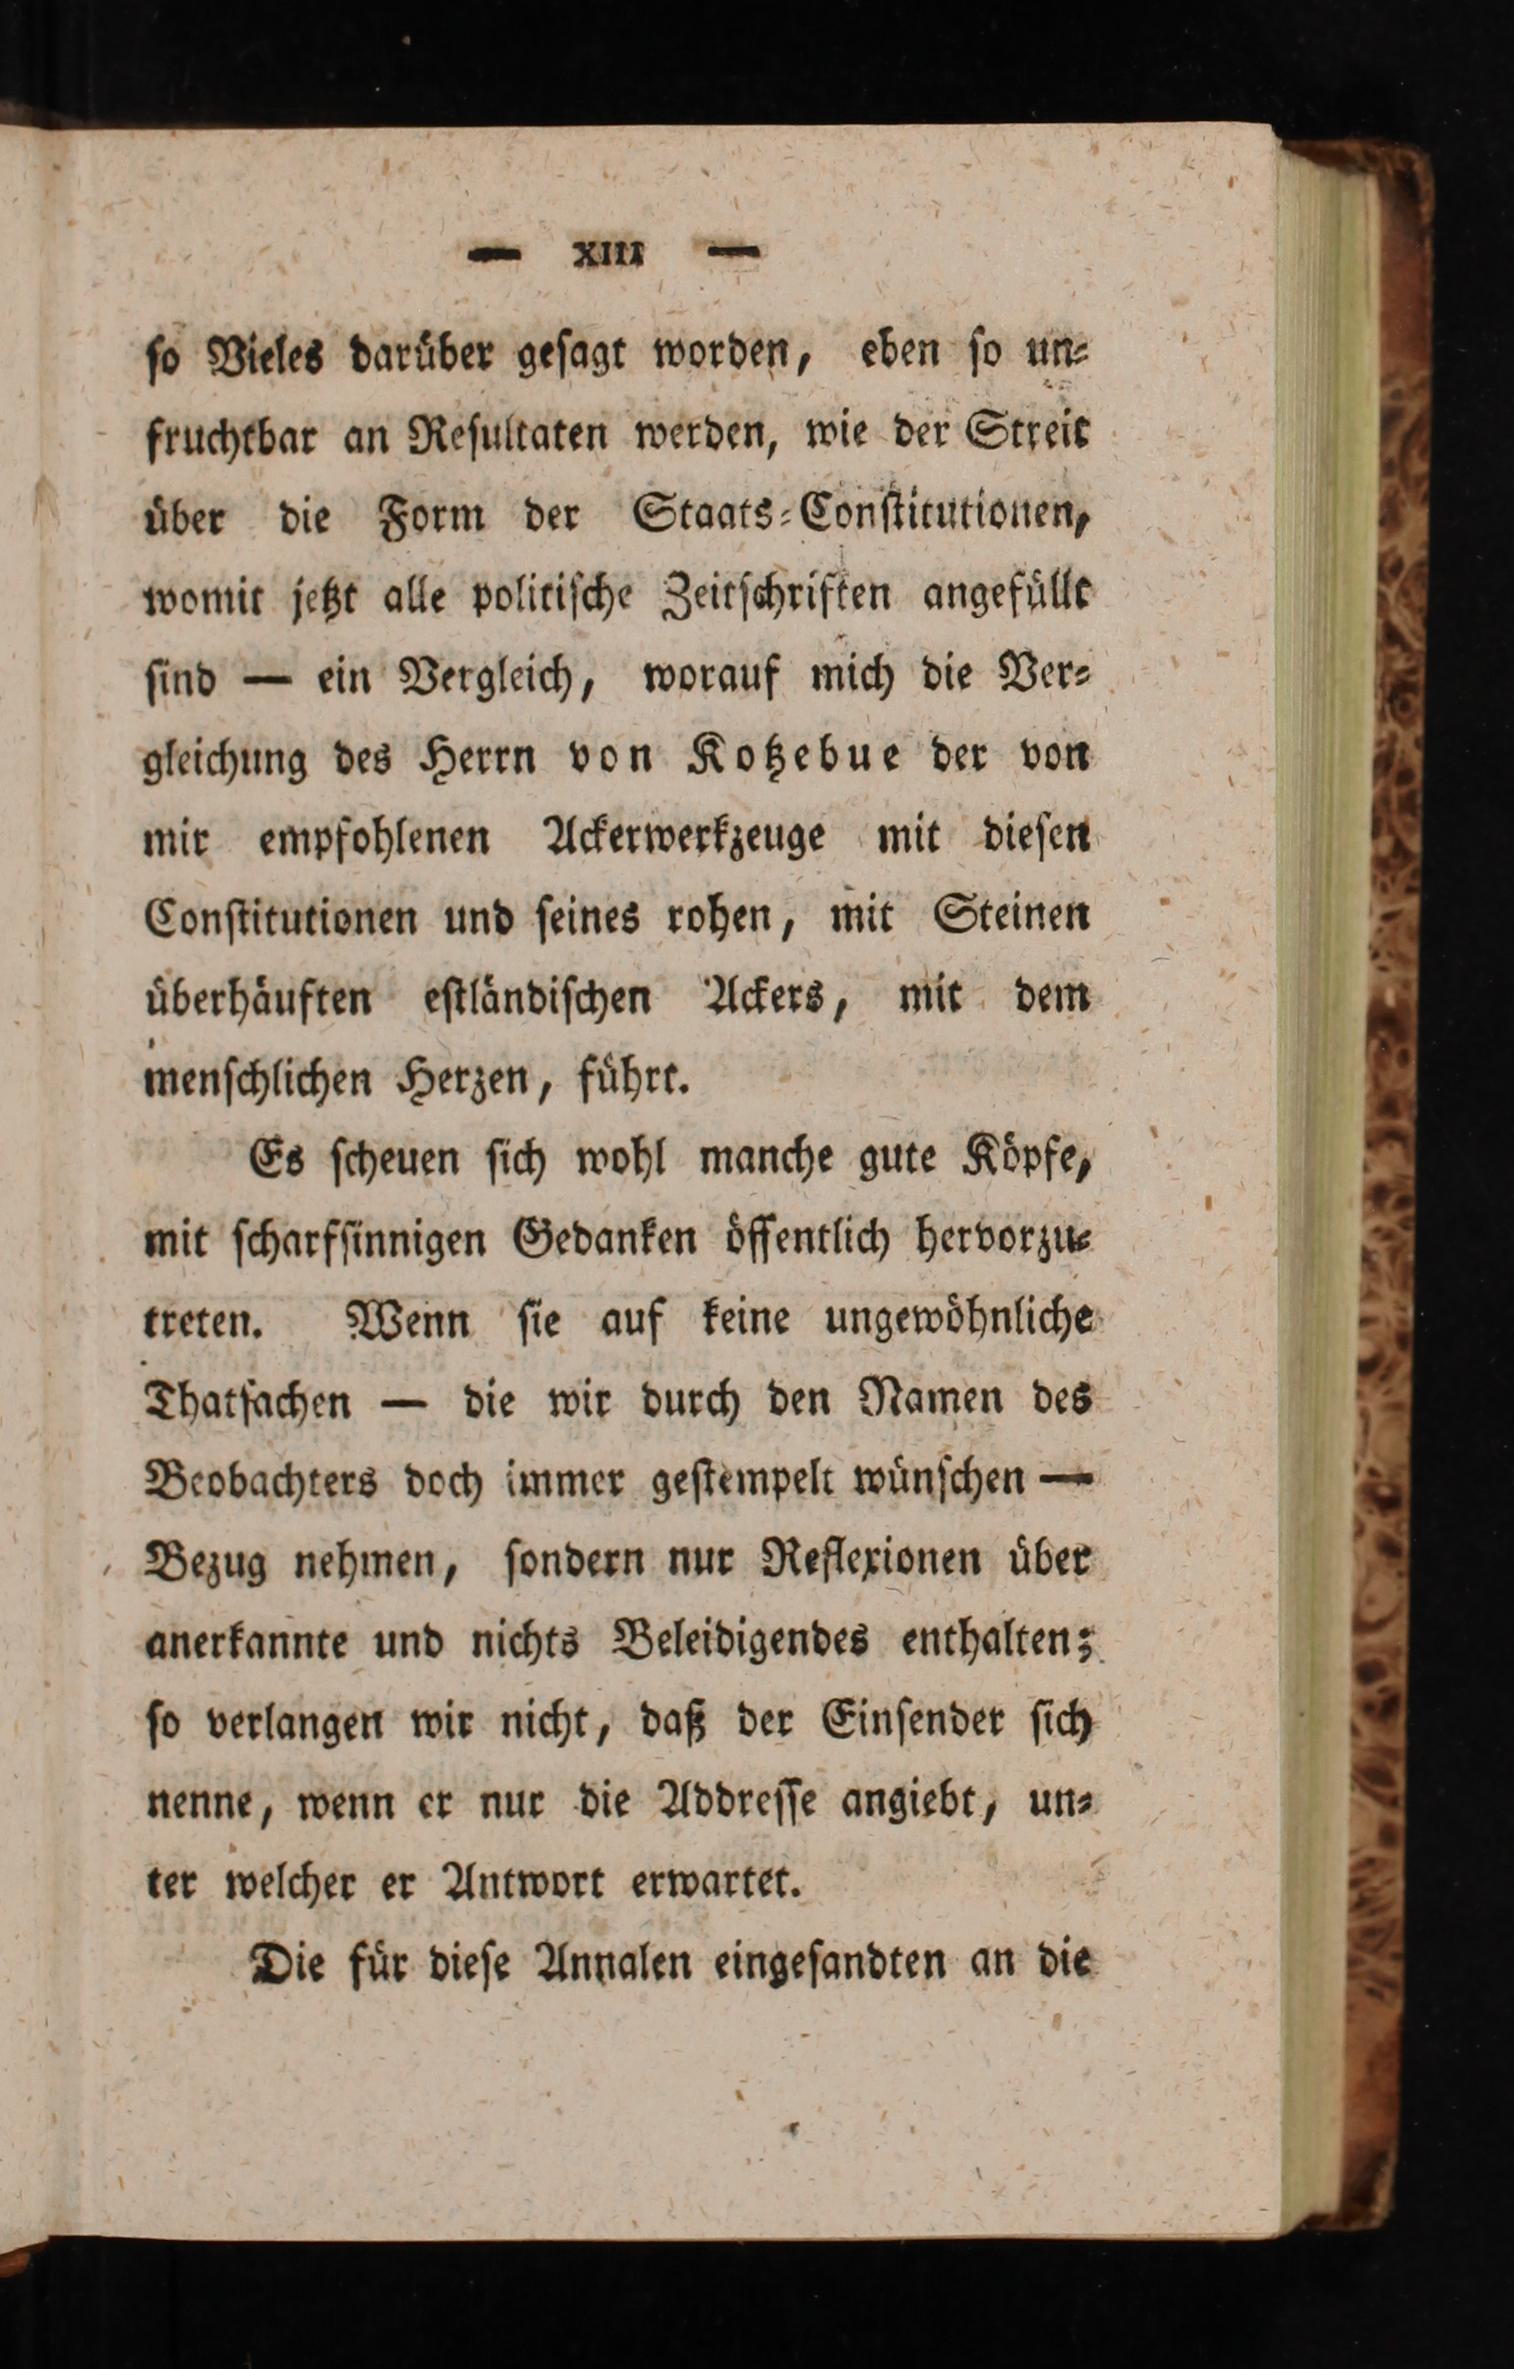 — XIII —
so Vieles darüber gesagt worden, eben so un-
fruchtbar an Resultaten werden, wie der Streit
über die Form der Staats-Constitutionen,
womit jetzt alle politische Zeitschriften angefüllt
sind — ein Vergleich, worauf mich die Ver-
gleichung des Herrn von Kotzebue der von
mir empfohlenen Ackerwerkzeuge mit diesen
Constitutionen und seines rohen, mit Steinen
überhäuften estländischen Ackers, mit dem
menschlichen Herzen, führt.
Es scheuen sich wohl manche gute Köpfe,
mit scharfsinnigen Gedanken öffentlich hervorzu-
treten. Wenn sie auf keine ungewöhnliche
Thatsachen — die wir durch den Namen des
Beobachters doch immer gestempelt wünschen —
Bezug nehmen, sondern nur Reflexionen über
anerkannte und nichts Beleidigendes enthalten;
so verlangen wir nicht, daß der Einsender sich
nenne, wenn er nur die Addresse angiebt, un-
ter welcher er Antwort erwartet.
Die für diese Annalen eingesandten an die